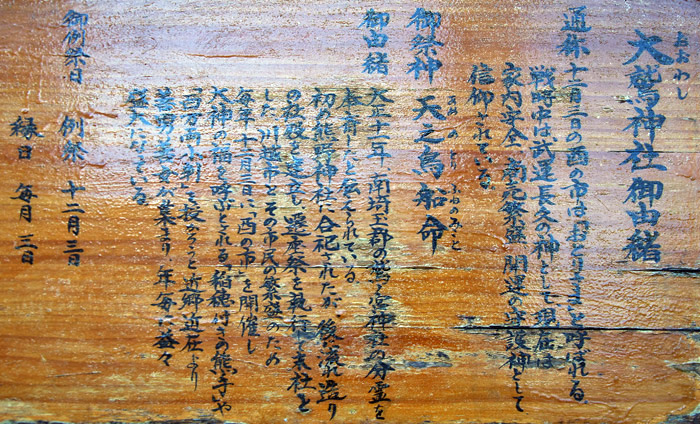 大鷲神社御由緒
おおわし
通称 十二月三日の酉の市は「おとりさま」と呼ばれる
戦時中は武運長久の神として現在は
家内安全、商売繁盛、開運の守護神として
信仰されている
御祭神 天之鳥船命
あめのとりふねのみこと
御由緒 大正十二年、南埼玉郡の鷲宮神社の分霊を
奉斎したと伝えられている
初め熊野神社に合祀されたが、後に流れ造り
の社殿を建立し、遷座祭を執行し末社と
した 川越市とその市民の繁盛のため
毎年十二月三日に「酉の市」を開催し
大神の福を呼ぶとされる「稲穂付きの熊手」や
を授かろうと近郷近在より
老若男女が参集まり、年毎に益々
盛大になっている
御例祭日 例祭 十二月三日
縁日 毎月 三日